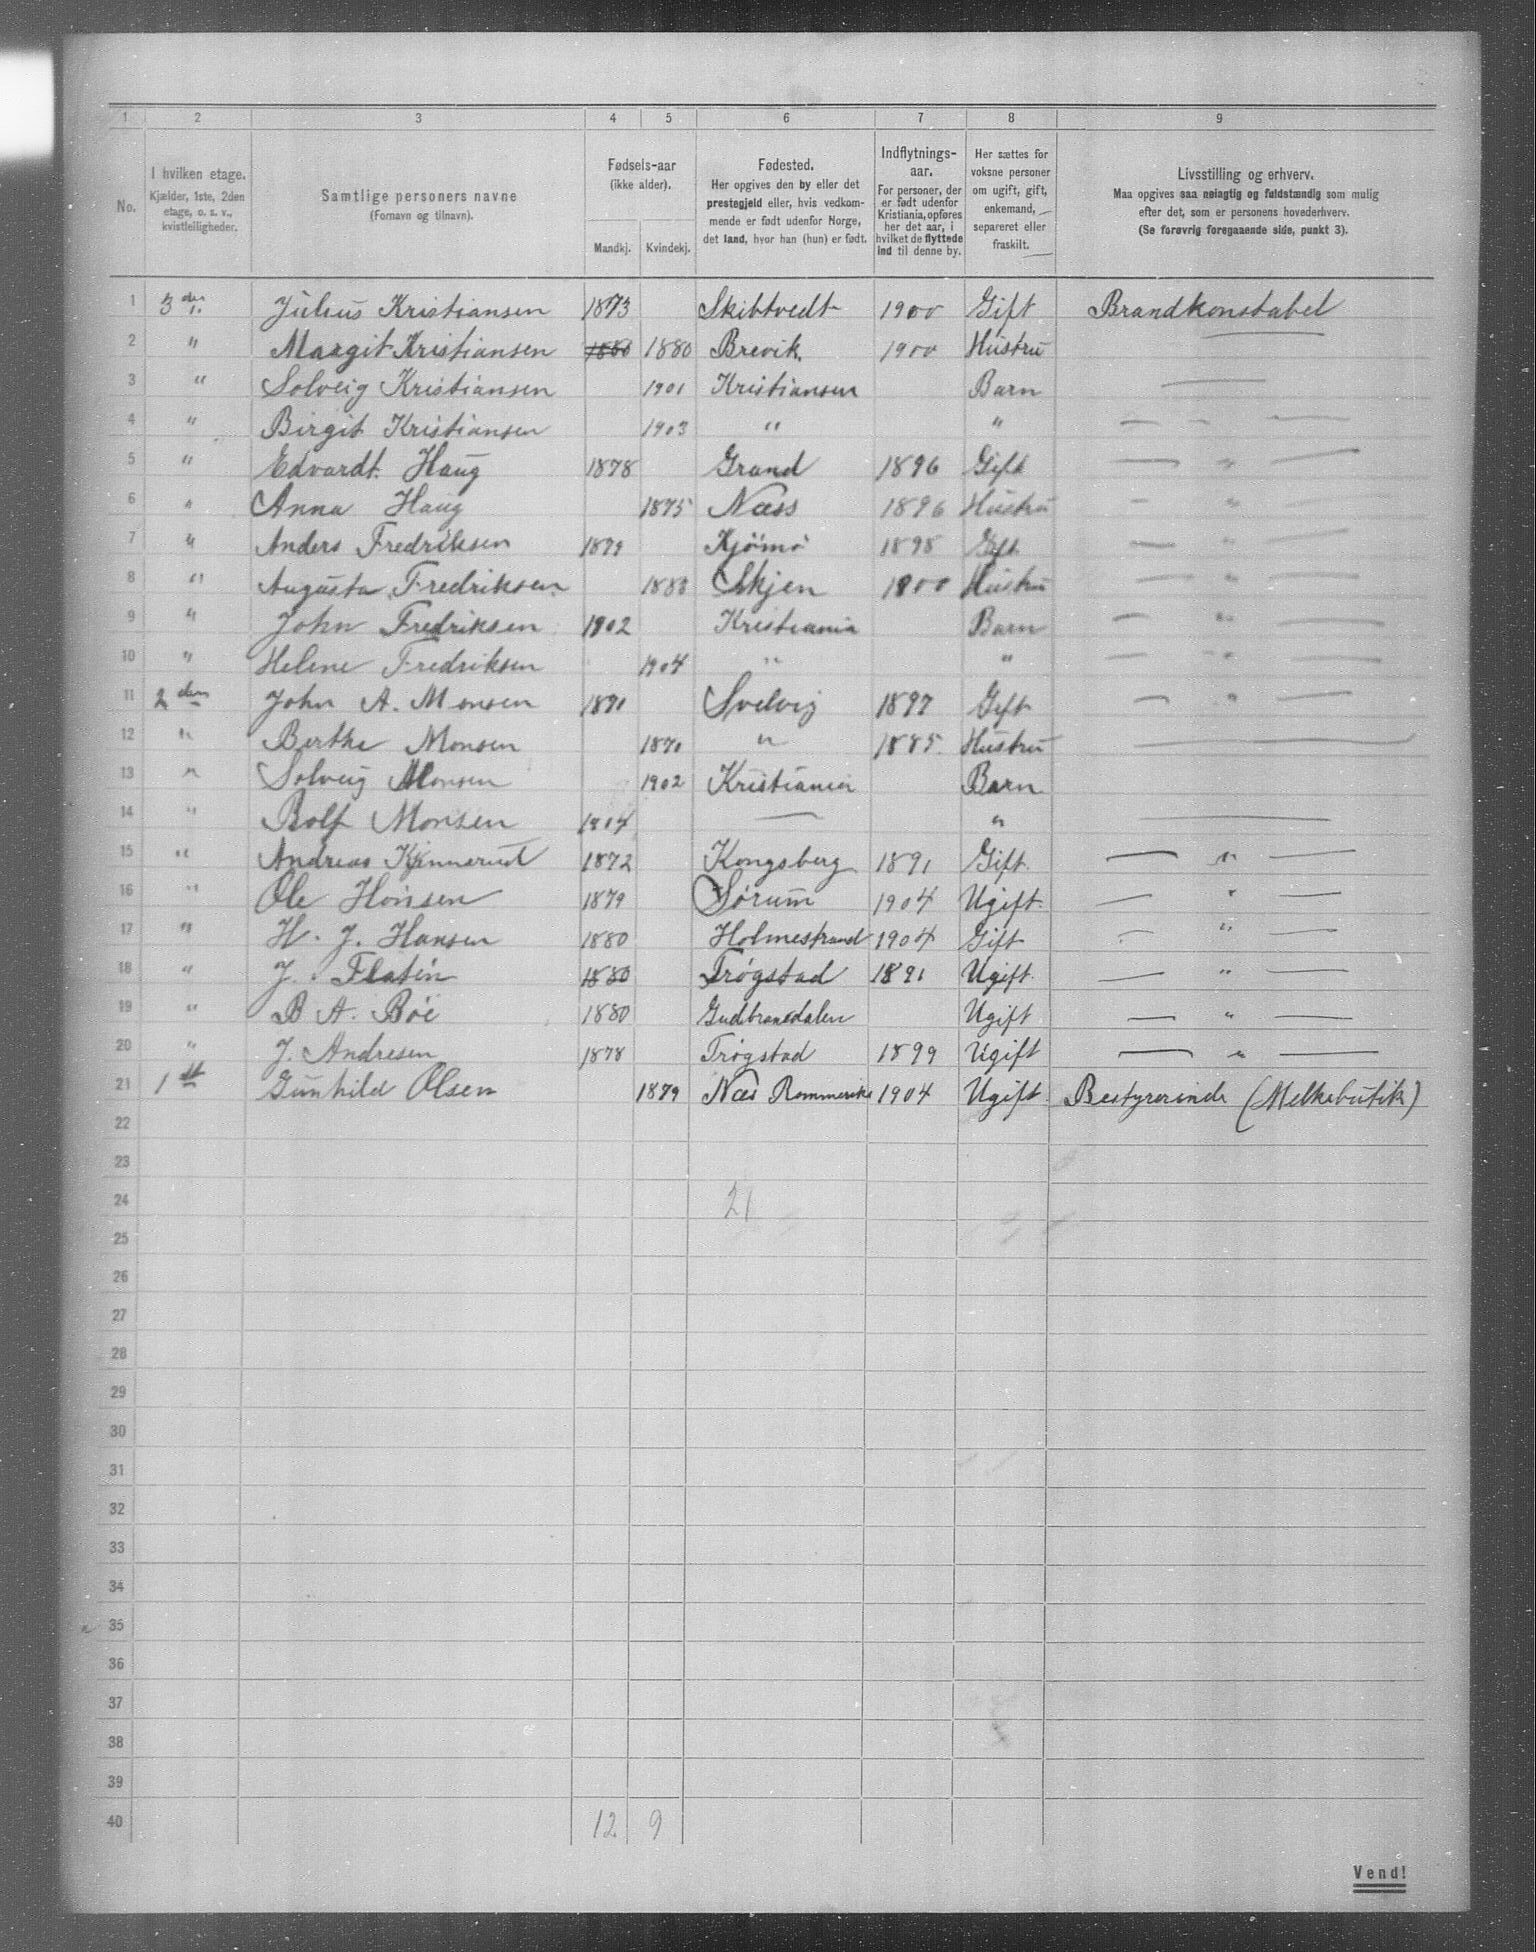 1 2 3 4 5 6 7 8 9
No.
I hvilken etage.
Kjælder, 1ste, 2den
etage, o. s. v.,
kvistleiligheder.
Samtlige personers navne
(Fornavn og tilnavn).
Fødsels-aar
(ikke alder).
Mandkj. Kvindekj.
Fødested.
Her opgives den by eller det
prestegjeld eller, hvis vedkom-
mende er født udenfor Norge,
det land, hvor han (hun) er født.
Indflytnings-
aar.
For personer, der
er født udenfor
Kristiania, opføres
her det aar, i
hvilket de flyttede
ind til denne by.
Her sættes for
voksne personer
om ugift, gift,
enkemand,
separeret eller
fraskilt.
Livsstilling og erhverv.
Maa opgives saa nøiagtig og fuldstændig som mulig
efter det, som er personens hovederhverv.
(Se forøvrig foregaaende side, punkt 3).
1 3 die Julius Kristiansen 1873 Skibtvedt 1900 Gift Brandkonstabel
2 " Margit Kristiansen 1880 1880 Brevik 1900 Hustru —
3 " Solveig Kristiansen 1901 Kristiansen Barn —
4 " Birgit Kristiansen 1903 " " — — —
5 " Edvardt Haug 1878 Grand 1896 Gift — " —
6 " Anna Haug 1875 Næss 1896 Hustru — " —
7 " Anders Fredriksen 1879 Kjømø 1898 Gift — " —
8 " Augusta Fredriksen 1880 Skjen 1900 Hustru — " —
9 " John Fredriksen 1902 Kristiania Barn — " —
10 " Helene Fredriksen 1904 " " — " —
11 2 den John A. Monsen 1870 Svelvig 1897 Gift — " —
12 " Berthe Monsen 1870 " 1885. Hustru —
13 " Solveig Monsen 1902 Kristiania Barn
14 " Rolf Monsen 1904 — " —
15 " Andreas Kjennerud 1872 Kongsberg 1891 Gift — " —
16 " Ole Hansen 1879 Sørum 1904 Ugift. — " —
17 " H. J. Hansen 1880 Holmestrand 1904 Gift — " —
18 " J. Flatin 1880 Trøgstad 1891 Ugift. — " —
19 " B A. Bøe 1880 Gudbransdalen Ugift — " —
20 " J. Andresen 1878 Trøgstad 1899 Ugift — " —
21 1 st Gunhild Olsen 1879 Næs Rommerike 1904 Ugift Bestyrerinde (Melkebutik)
22
23
24 21
25
26
27
28
29
30
31
32
33
34
35
36
37
38
39
40 12 9
Vend!